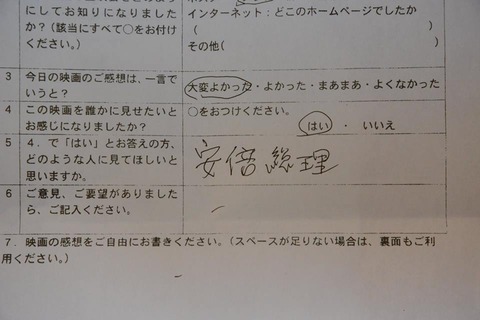 にしてお知りになりました
か？（該当にすべて○をお付け
ください。）
インターネット：どこのホームページでしたか
（　　　　　　　　　　　　　　　　）
その他（　　　　　　　　　　　　　）
3 今日の映画のご感想は、一言で
いうと？
大変よかった・よかった・まあまあ・よくなかった
4 この映画を誰かに見せたいと
お感じになりましたか？
○をおつけください。
はい　・　いいえ
5 4．で「はい」とお答えの方、
どのような人に見てほしいと
思いますか。
安倍総理
6 ご意見、ご要望がありました
ら、ご記入ください。
7．映画の感想をご自由にお書きください。（スペースが足りない場合は、裏面もご利
用ください。）